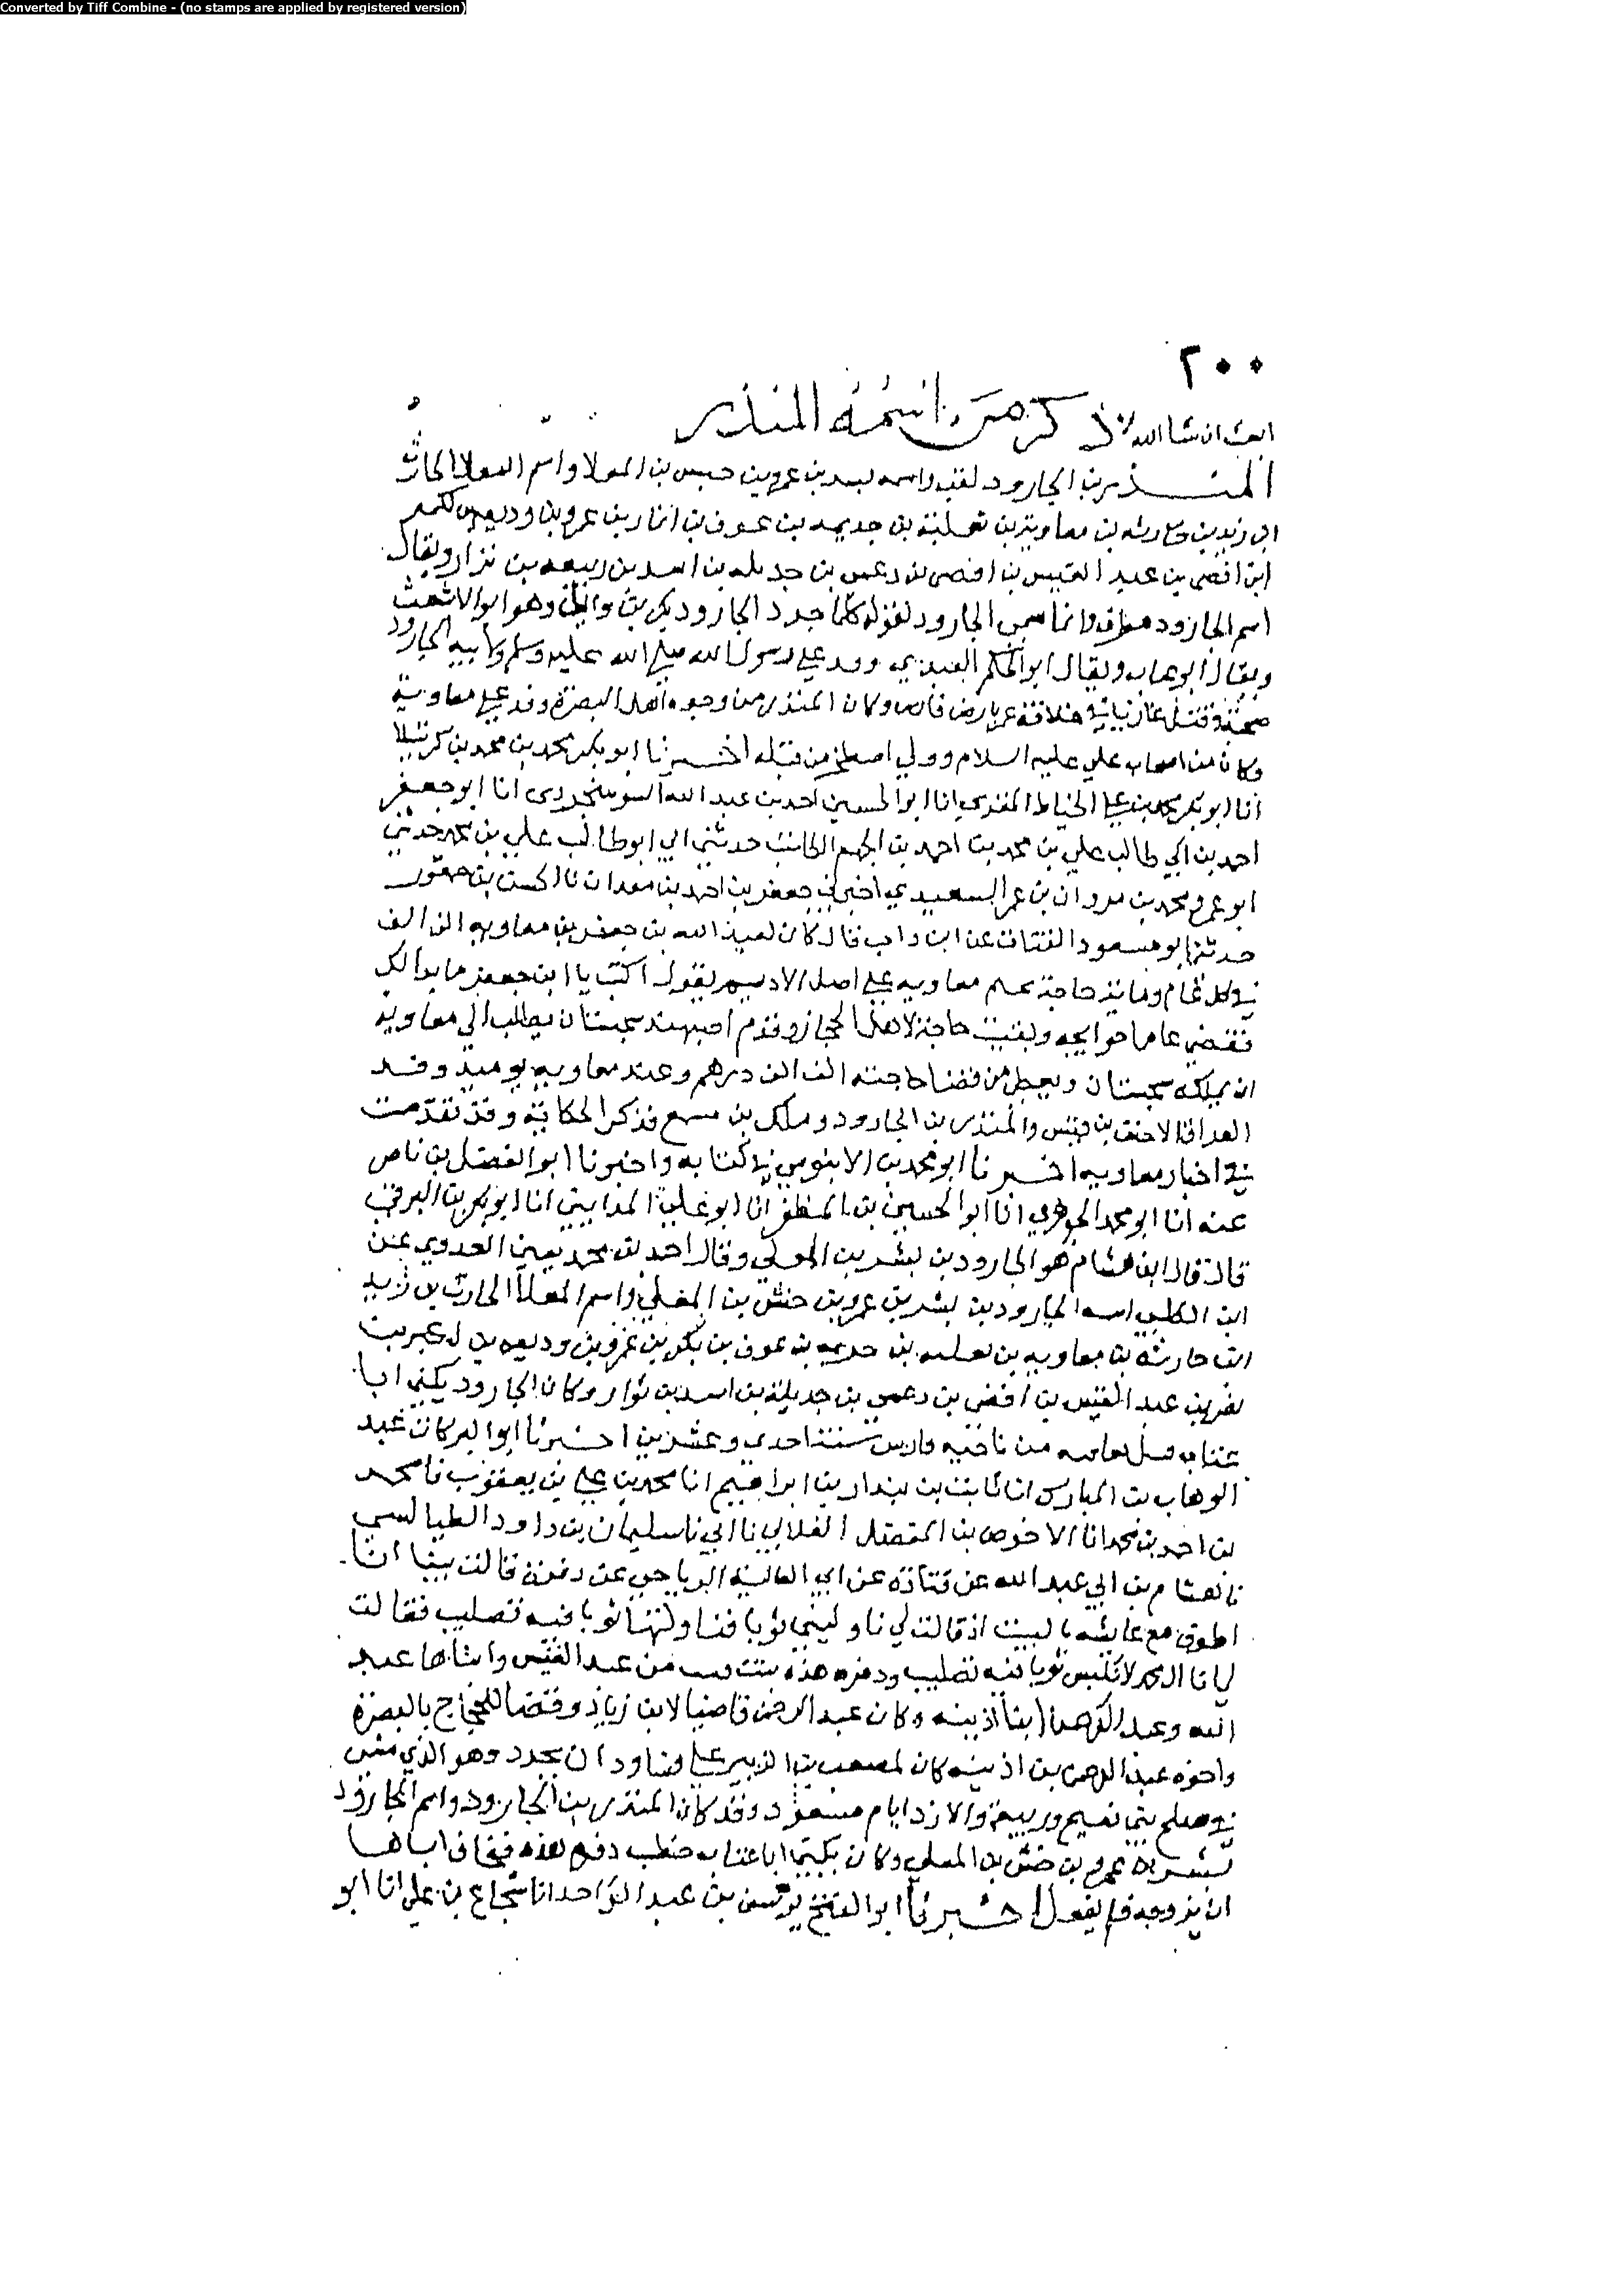 Converted by Tiff Combine - (no stamps are applied by registered version)
٢٠٠
ان شا الله ذكر من اسمه المنذر
المنذر بن الجارود لقب واسمه بن عمرو بن حبيس بن المعلا واسم المعلا الحارث
ابن زيد بن حارثه بن معاوية بن ثعلبة بن جديمه بن عوف بن انمار بن عمرو بن وديعه بن لكيز
ابن افصى بن عبد القيس بن افصى بن دعمى بن جديله بن اسد بن ربيعه بن نزار ويقال
اسم الجارود مطرف وانما سمى الجارود لقوله كما جرد الجارود بكر بن وائل وهو ابو الاشعث
ويقال ابو عتاب ويقال ابو الحكم العبدي ووفد على رسول الله صلى الله عليه وسلم ولابيه الجارود
صحبة وقتل غازيا في خلافة عمر بارض فارس وكان المنذر من وجوه اهل البصرة وفد على معاوية
وكان من اصحاب علي عليه السلام وولي اصطخر من قبله اخبرنا ابو بكر محمد بن محمد بن كرتيلا
انا ابو بكر محمد بن علي الخياط المقري انا ابو الحسين احمد بن عبد الله السوسنجردى انا ابو جعفر
احمد بن ابي طالب علي بن محمد بن احمد بن الجهم الكاتب حدثني ابي ابو طالب علي بن محمد حدثني
ابو عمرو محمد بن مروان بن عمر السعيدي اخبرني جعفر بن احمد بن معدان نا الحسن بن جهور
حدثنا ابو مسعود القتات عن ابن داب قال كان لعبد الله بن جعفر من معاويه الف الف
في كل عام ومائة حاجة يختم معاويه على اصل الاديم ثم يقول اكتب يا ابن جعفر ما بدا لك
فقضى عاما حوايجه وبقيت حاجة لاهل الحجاز وقدم اصبهبذ سجستان يطلب الى معاوية
ان يملكه سجستان ويعطى من قضا حاجته الف الف درهم وعند معاويه يوميذ وفد
العراق الاحنف بن قيس والمنذر بن الجارود ومالك بن مسمع فذكر الحكاية وقد تقدمت
في اخبار معاويه اخبرنا ابو محمد بن الابنوسي في كتابه واخبرنا ابو الفضل بن ناصر
عنه انا ابو محمد الجوهري انا ابو الحسين بن المظفر انا ابو علي المدايني انا ابو بكر بن البرقي
قال قال ابن هشام هو الجارود بن بشر بن المعلى وقال احمد بن محمد يعني العدوي عن
ابن الكلبي اسم الجارود بن بشر بن عمرو بن حنش بن المعلى واسم المعلا الحارث بن زيد
ابن حارثه بن معاويه بن ثعلبه بن جديمه بن عوف بن بكر بن عمرو بن وديعه بن لكيز بن
افصى بن عبد القيس بن افصى بن دعمى بن جديلة بن اسد بن نزار وكان الجارود يكنى ابا
عتاب من ناحيه فارس سنة احدى وعشرين اخبرنا ابو البركات عبد
الوهاب بن المبارك انا ثابت بن بندار بن ابراهيم انا محمد بن علي بن يعقوب نا محمد
بن احمد بن محمد انا الاحوص بن المفضل الغلابي نا ابي نا سليمان بن داود الطيالسي
نا هشام بن ابي عبد الله عن قتادة عن ابي العالية الرياحي عن دفرة قالت بينا انا
اطوف مع عايشه بالبيت اذ قالت لي ناوليني ثوبا فناولتها ثوبا فيه تصليب فقالت
انا ال محمد لا نلبس ثوبا فيه تصليب ودفره هذه من عبد القيس وابناها عبد
الله وعبد الرحمن ابنا اذينه وكان عبد الرحمن قاضيا لابن زياد وقضا للحجاج بالبصرة
واخوه عبد الله بن اذينه كان لمصعب بن الزبير على وهو الذي مشى
في صلح بني تميم وربيعة والازد ايام مسعود وقد كان المنذر بن الجارود واسم الجارود
بشر بن عمرو بن حنش بن المعلى وكان يكنى ابا عتاب خطب دفره هذه فخاف اباها
ان يزوجه فلم يفعل اخبرنا ابو الفتح يوسف بن عبد الواحد انا شجاع بن علي انا ابو